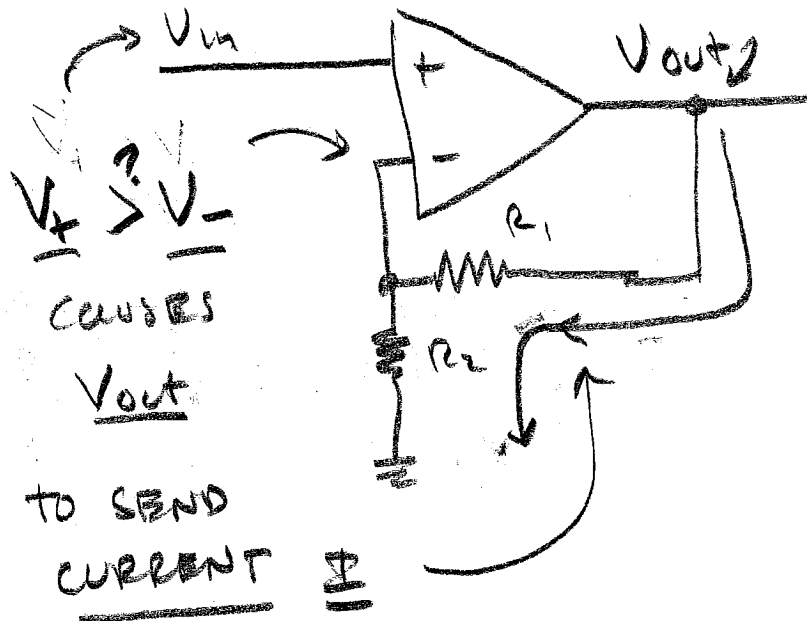 Vin
Vout
+
-
V+ >? V-
R1
CAUSES
R2
Vout
TO SEND
CURRENT I